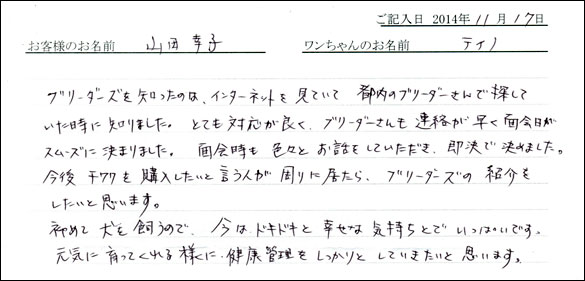 ご記入日 2014年11月17日
お客様のお名前 山田幸子 ワンちゃんのお名前 ティノ
ブリーダーズを知ったのは、インターネットを見ていて 都内のブリーダーさんで探して
いた時に知りました。とても対応が良く、ブリーダーさんも連絡が早く面会日が
スムーズに決まりました。面会時も色々とお話をしていただき、即決で決めました。
今後チワワを購入したいと言う人が周りに居たら、ブリーダーズの紹介を
したいと思います。
初めて犬を飼うので、今はドキドキと幸せな気持ちとでいっぱいです。
元気に育ってくれる様に、健康管理をしっかりとしていきたいと思います。